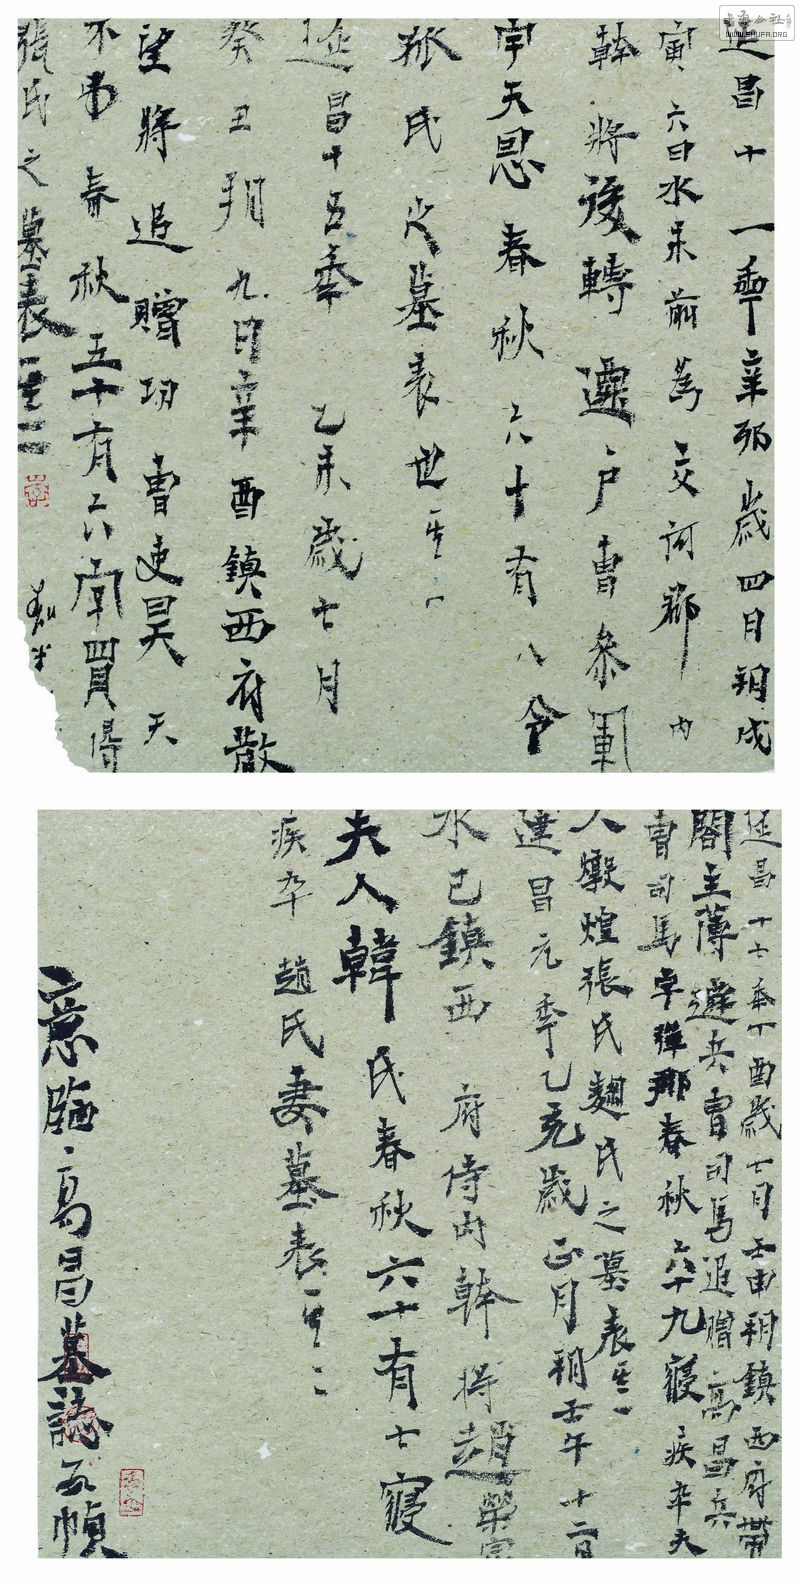 延昌十一年辛卯歲四月朔戊
寅六日水未前為交河郡內
幹將後轉遷戶曹參軍
字天恩春秋六十有八令
狐氏之墓表
延昌十五年乙未歲七月
癸丑朔九日辛酉鎮西府散
望將追贈功曹吏昊天
不弔春秋五十有六字買得
張氏之墓表
延昌十七年丁酉歲七月壬申朔鎮西府帶
閣主薄遷兵曹司馬追贈高昌兵
曹司馬春秋六十九寢疾卒夫
人燉煌張氏麴氏之墓表
建昌元年乙亥歲正月朔壬午十二日
水巳鎮西府侍內幹將趙榮宗
夫人韓氏春秋六十有七寢
疾卒趙氏妻墓表
意臨高昌墓誌五幀
書法公社
WWW.SHUFA.ORG